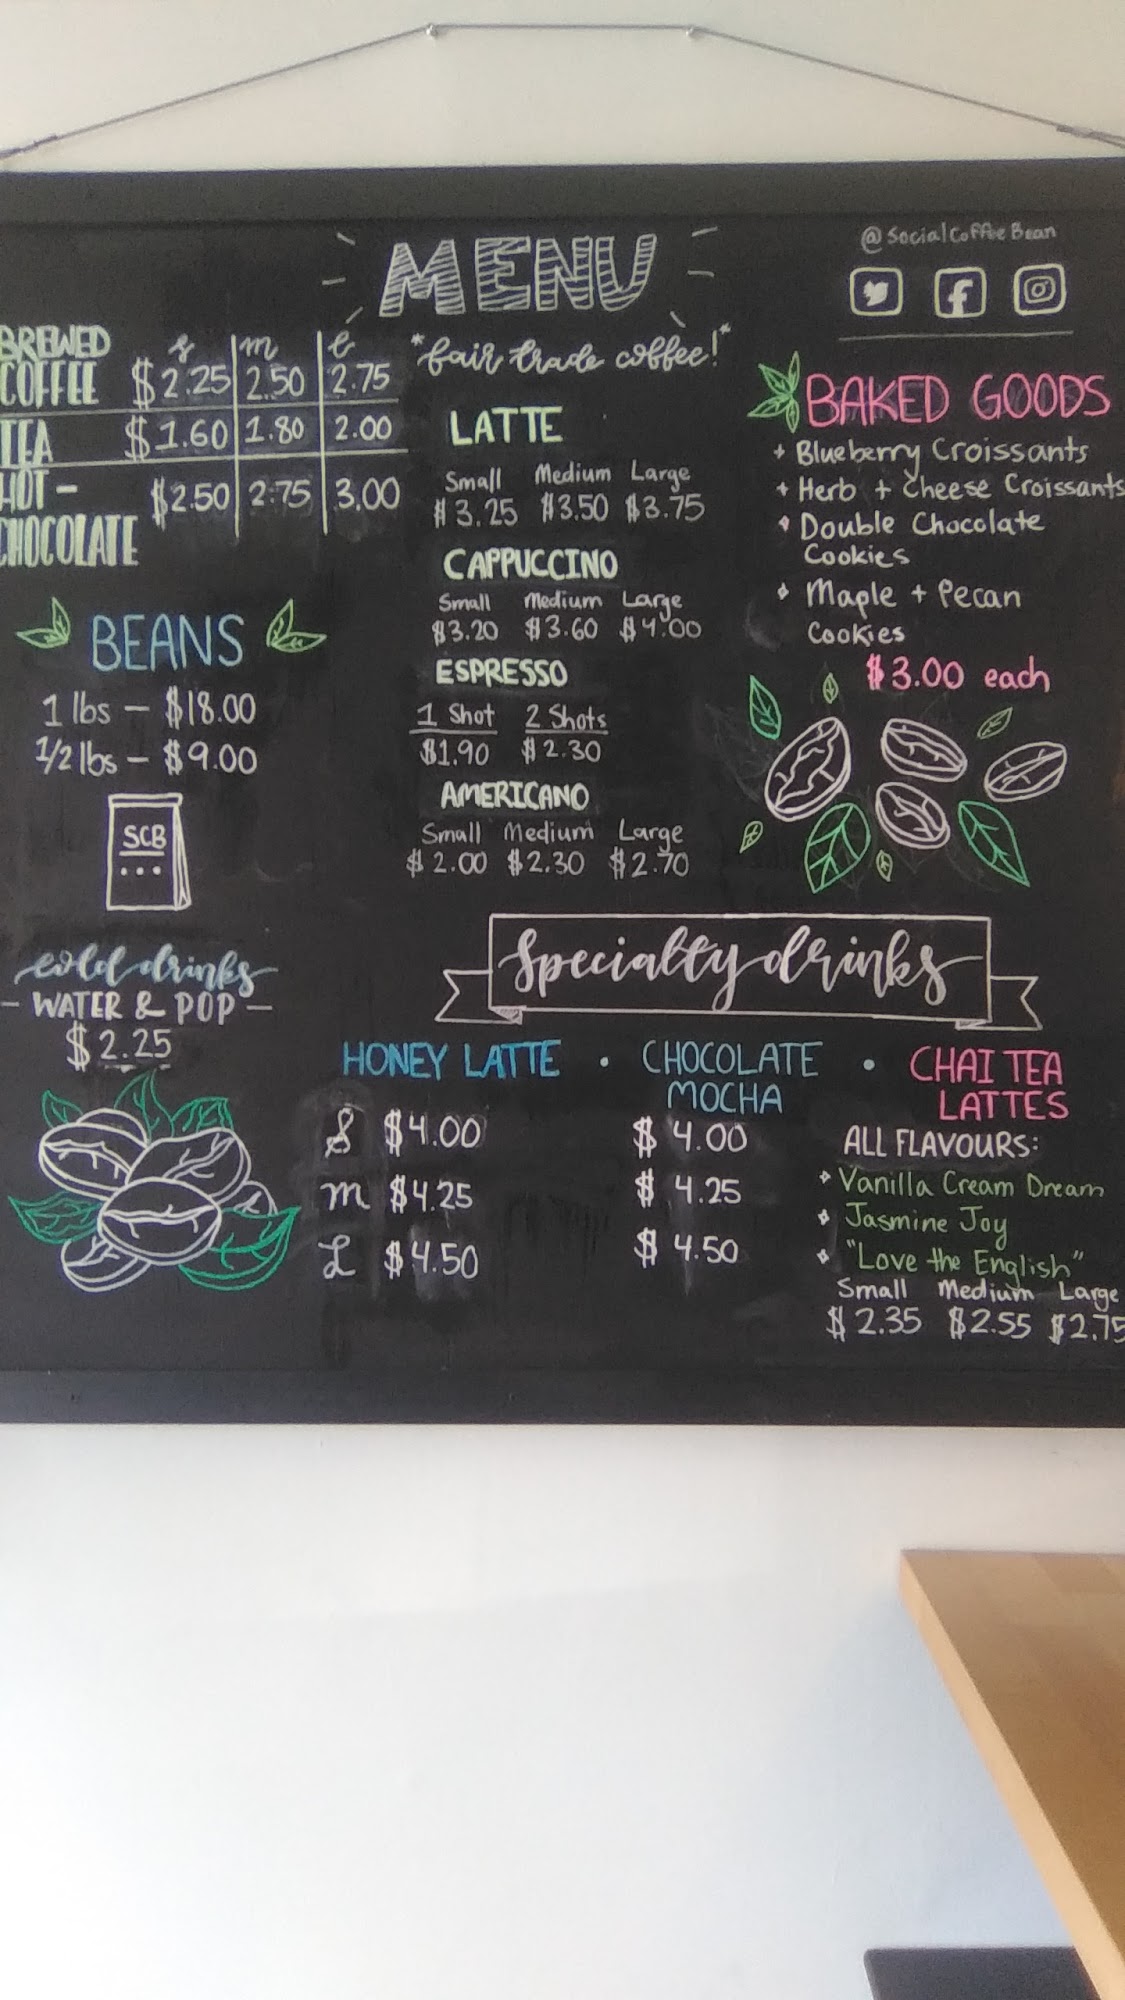 MENU
*fair trade coffee!*
@SocialCoffeeBean
s m l
BREWED
COFFEE $2.25 2.50 2.75
TEA $1.60 1.80 2.00
HOT- $2.50 2.75 3.00
CHOCOLATE
BEANS
1 lbs — $18.00
1/2 lbs — $9.00
SCB
cold drinks
- WATER & POP -
$2.25
LATTE
Small Medium Large
$3.25 $3.50 $3.75
CAPPUCCINO
Small Medium Large
$3.20 $3.60 $4.00
ESPRESSO
1 Shot 2 Shots
$1.90 $2.30
AMERICANO
Small Medium Large
$2.00 $2.30 $2.70
BAKED GOODS
Blueberry Croissants
Herb + Cheese Croissants
Double Chocolate
Cookies
Maple + Pecan
Cookies
$3.00 each
Specialty drinks
HONEY LATTE •
S $4.00
M $4.25
L $4.50
CHOCOLATE •
MOCHA
$4.00
$4.25
$4.50
CHAI TEA
LATTES
ALL FLAVOURS:
Vanilla Cream Dream
Jasmine Joy
"Love the English"
Small Medium Large
$2.35 $2.55 $2.75